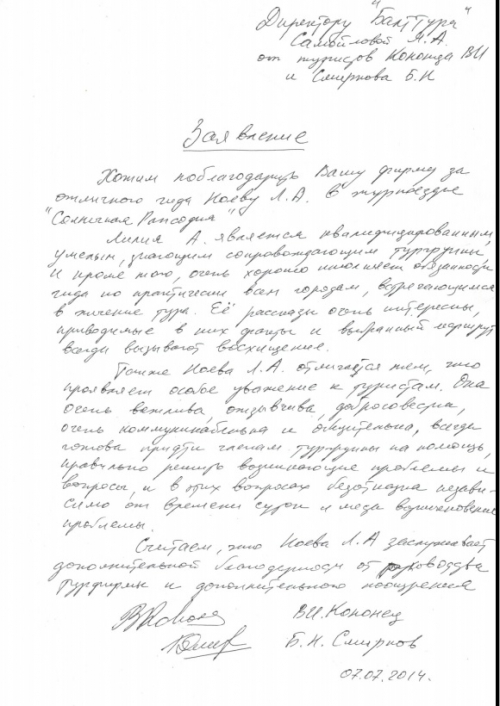 Директору "БактТура"
Самойловой Я.А.
от туристов Кононца ВИ
и Смирнова Б.Н
Заявление
Хотим поблагодарить Вашу фирму за
отличного гида Ноеву Л.А. в турпоездке
"Солнечная Рапсодия"
Лилия А. является квалифицированным,
умелым, знающим сопровождающим тургруппы,
и кроме того, очень хорошо исполняет обязанности
гида по практически всем городам, встречающимся
в течение тура. Её рассказы очень интересны,
приводимые в них факты и выбранный маршрут
всегда вызывают восхищение.
Также Ноева Л.А. отличается тем, что
проявляет особое уважение к туристам. Она
очень вежлива, отзывчива, добросовестна,
очень коммуникабельна и общительна, всегда
готова придти членам тургруппы на помощь,
правильно решить возникающие проблемы и
вопросы, и в этих вопросах безотказна незави-
симо от времени суток и места возникновения
проблемы.
Считаем, что Ноева Л.А заслуживает
дополнительной благодарности от руководства
турфирмы и дополнительного поощрения
В.И. Кононец
Б.Н. Смирнов
07.07.2014.